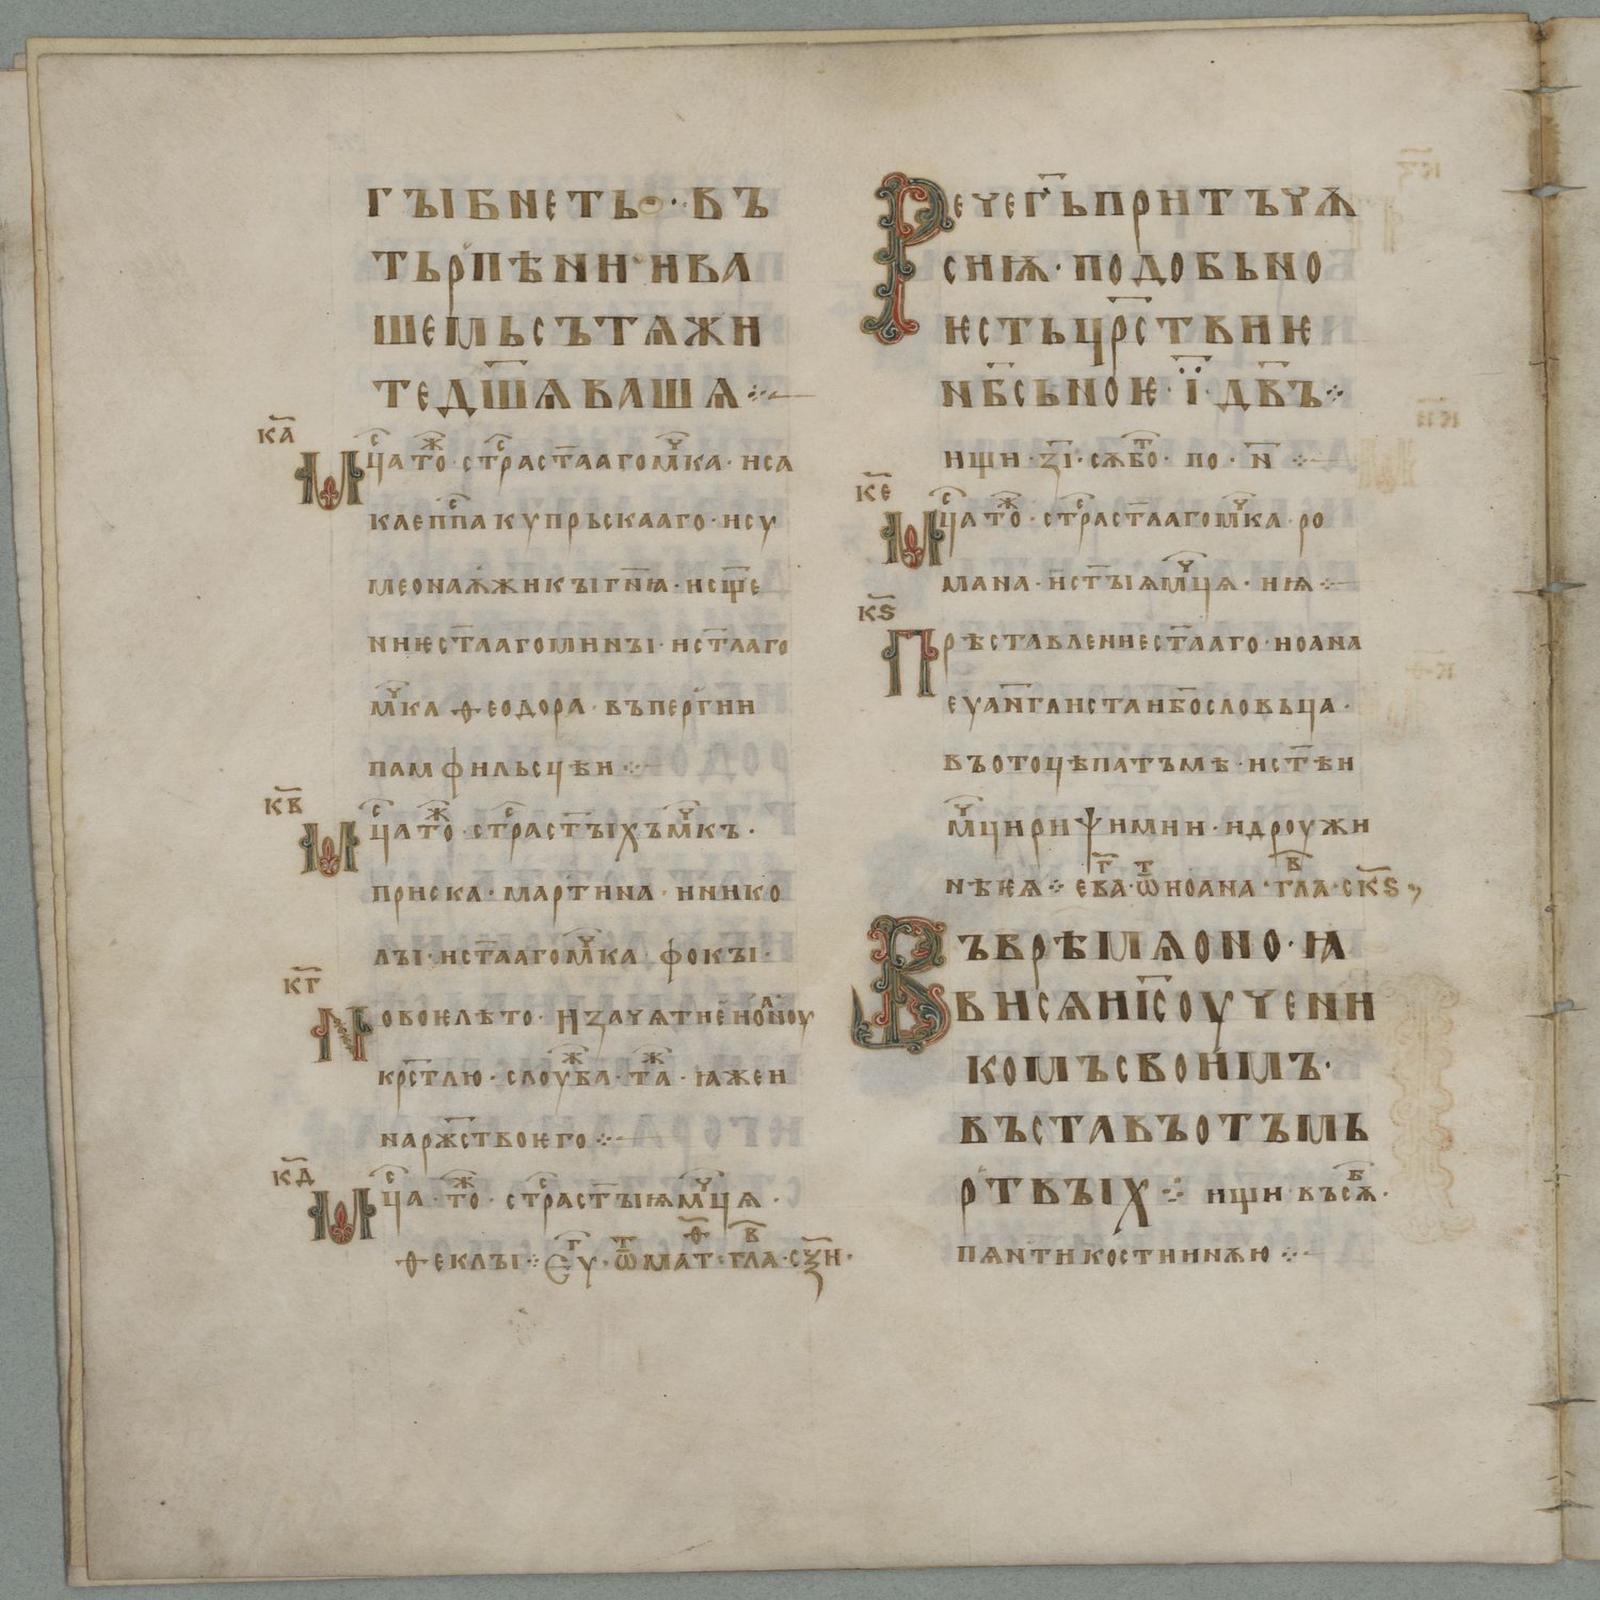 гꙑбнеть · въ
тьрпѣнии · ва
шемь сътѧжи
те дш҃ѧ вашѧ ⁘
к҃а
Мцⷭ҇а тоⷤ · стрⷭ҇а ст҃ааго мⷱ҇ка · иса
кⷭ҇а еппа купрьскааго · и су
меона ѫжикꙑ гн҃ꙗ · и сщ҃е
ниѥ ст҃ааго минꙑ · и ст҃ааго
мⷱ҇ка ѳеодора · въ пергии
памфильсцѣи ⁘
к҃в
Мцⷭ҇а тоⷤ · стрⷭ҇а ст҃ꙑхъ мⷱ҇къ ·
приска · мартина · и нико
лꙑ · и ст҃ааго мⷱ҇ка · фокꙑ ·
к҃г
Новоѥ лѣто · И зачѧтие иоаⷩ҇ноу
крс҃тлю · слоуⷤба · таⷤ · ꙗже и
на рж҃ство ѥго ⁘
к҃д
Мцⷭ҇а · тоⷤ · стрⷭ҇а ст҃ꙑꙗ мⷱ҇цѧ ·
ѳеклꙑ ⁘ Еуⷢ҇ · ѿ маⷴ҇т · глаⷡ҇ · с҃ѯи ·
Рече г҃ь притъчѫ
сиѭ · подобьно
ѥсть цр҃ствиѥ
нб҃сьноѥ · і҃ · дв҃ъ ⁘
ищи · з҃і · сѫбоⷮ · по · н҃ ⁘
к҃е
Мцⷭ҇а тоⷤ · стрⷭ҇а ст҃ааго мⷱ҇ка · ро
мана · и ст҃ꙑѧ мⷱ҇цѧ · иѩ ⁘
к҃ѕ
Прѣставление ст҃ааго · иоана
еуан҃глиста и б҃ословьца ·
въ отоцѣ патъмѣ · и ст҃ѣи
мⷱ҇ци риѱимии · и дроужи
нѣ ѥѧ ⁘ еваⷢ҇ · ѿ иоана · глаⷡ҇ · с҃кѕ
Въ врѣмѧ оно · ꙗ
ви сѧ и҃с оучени
комъ своимъ ·
въставъ отъ мь
ртвꙑхъ ⁘ ищи · въ сѫⷠ҇ ·
пѧнтикостиинѫю ⁘